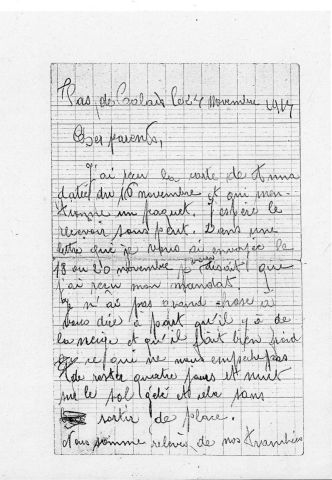 Pas de Calais le 24 novembre 1917
Chers parents,
J'ai reçu la carte de Anna
datée du 16 novembre et qui men-
tionne un paquet, j'espère le
recevoir sans peut. Dans une
lettre que je vous ai envoyée le
18 ou 20 novembre je vous disait que
j'ai reçu mon mandat.
Je n'ai pas grand chose à
vous dire à part qu'il y a de
la neige et qu'il fait bien froid
ce qui ne nous empeche pas
de rester quatre jours et nuit
sur le sol gelé et cela sans
sortir de place.
Nous somme relevés de nos tranchées